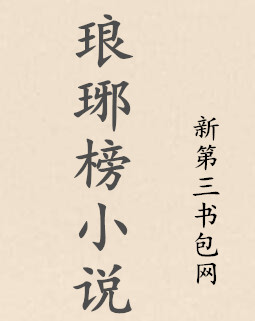 琅琊榜小说
新第三书包网